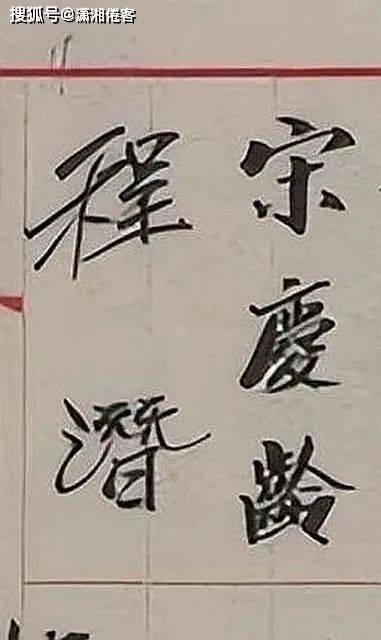 搜狐号@潇湘倦客
宋慶齡
程潛